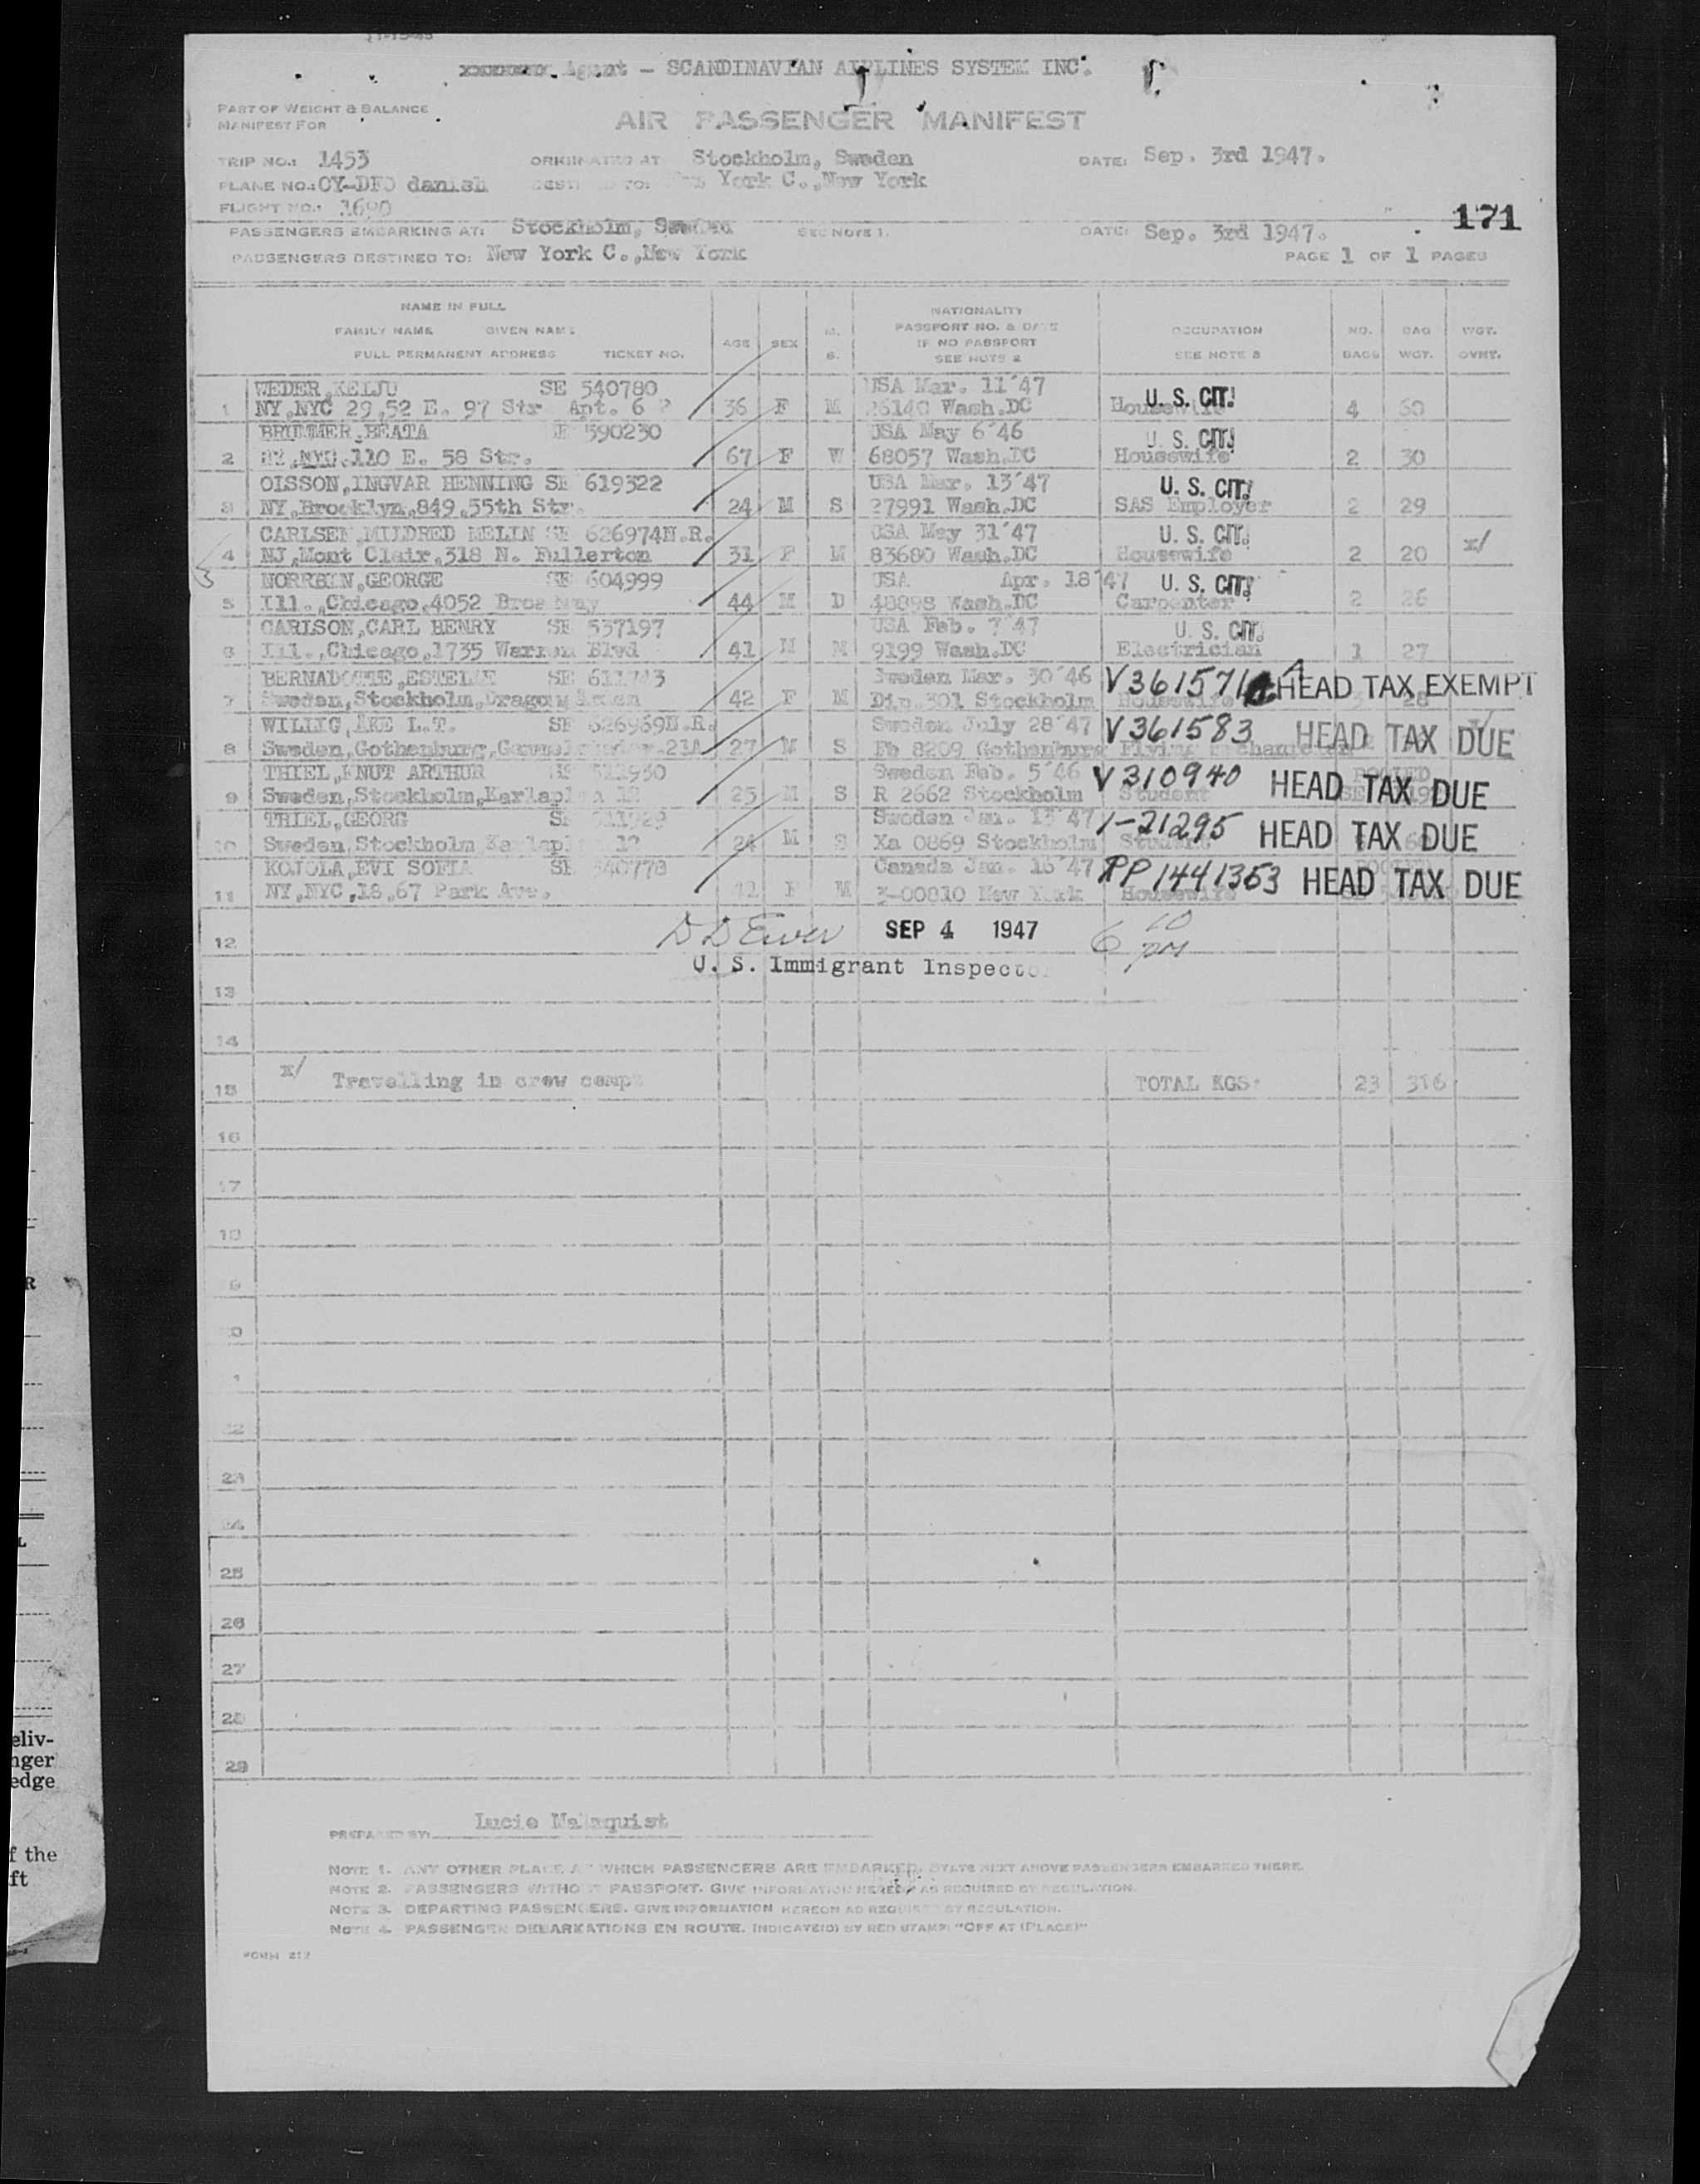 Agent - SCANDINAVIAN AIRLINES SYSTEM INC.
PART OF WEIGHT & BALANCE
MANIFEST FOR
AIR PASSENGER MANIFEST
TRIP NO.: 1453 ORIGINATED AT Stockholm, Sweden DATE: Sep. 3rd 1947.
PLANE NO.: OY-DFO danish DESTINED TO: New York C.,New York
FLIGHT NO.: 1690
171
PASSENGERS EMBARKING AT: Stockholm, Sweden SEE NOTE 1. DATE: Sep. 3rd 1947.
PASSENGERS DESTINED TO: New York C.,New York PAGE 1 OF 1 PAGES
NAME IN FULL
FAMILY NAME GIVEN NAME
FULL PERMANENT ADDRESS TICKET NO.
AGE SEX M. S.
NATIONALITY
PASSPORT NO. & DATE
IF NO PASSPORT
SEE NOTE 2
OCCUPATION
SEE NOTE 3
NO. BAGS BAG WGT. WGT. OVHT.
WEDER,KELJU SE 540780 USA Mar. 11'47 U. S. CIT.
1 NY,NYC 29,52 E. 97 Str Apt. 6 36 F M 26140 Wash.DC Housewife 4 60
BRUMMER,BEATA SE 590230 USA May 6'46 U. S. CIT.
2 NY,NYC.110 E. 58 Str. 67 F W 68057 Wash.DC Housewife 2 30
OISSON,INGVAR HENNING SE 619322 USA Mar. 13'47 U. S. CIT.
3 NY,Brooklyn,849,55th Str. 24 M S 27991 Wash.DC SAS Employer 2 29
CARLSEN,MILDRED MELIN SE 626974N.R. USA May 31'47 U. S. CIT.
4 NJ,Mont Clair,318 N. Fullerton 31 F M 83680 Wash.DC Housewife 2 20 x/
NORRBIN,GEORGE SE 604999 USA Apr. 18'47 U. S. CIT.
5 Ill.,Chicago,4052 Broadway 44 M D 48898 Wash.DC Carpenter 2 26
CARLSON,CARL HENRY SE 537197 USA Feb. 7'47 U. S. CIT.
6 Ill.,Chicago,1735 Warren Blvd 41 M M 9199 Wash.DC Electrician 1 27
BERNADOTTE,ESTELLE SE 611743 Sweden Mar. 30'46 V361571 HEAD TAX EXEMPT
7 Sweden,Stockholm,Dragongården 42 F M Dip.301 Stockholm Housewife 28
WILLIG,ÅKE L.T. SE 626969N.R. Sweden July 28'47 V361583 HEAD TAX DUE
8 Sweden,Gothenburg, 21A 27 M S Fb 8209 Gothenburg Flying mechanician
THIEL,KNUT ARTHUR SE 611930 Sweden Feb. 5'46 V310940 HEAD TAX DUE
9 Sweden,Stockholm,Karlaplan 12 25 M S R 2662 Stockholm Student
THIEL,GEORG SE 611929 Sweden Jan. 13'47 1-21295 HEAD TAX DUE
10 Sweden,Stockholm,Karlaplan 12 24 M S Xa 0869 Stockholm Student
KOJOLA,EVI SOFIA SE 540778 Canada Jan. 16'47 RP 1441353 HEAD TAX DUE
11 NY,NYC,18,67 Park Ave. F M 3-00810 New York Housewife
12 SEP 4 1947 6 10 PM
U. S. Immigrant Inspector
13
14
x/ Travelling in crew comp.
15 TOTAL KGS: 23 316
16
17
18
23
24
25
26
27
28
29
PREPARED BY: Lucie Malmquist
NOTE 1. ANY OTHER PLACE AT WHICH PASSENGERS ARE EMBARKED, STATE NEXT ABOVE PASSENGERS EMBARKED THERE.
NOTE 2. PASSENGERS WITHOUT PASSPORT. GIVE INFORMATION HEREON AS REQUIRED BY REGULATION.
NOTE 3. DEPARTING PASSENGERS. GIVE INFORMATION HEREON AS REQUIRED BY REGULATION.
NOTE 4. PASSENGER DEBARKATIONS EN ROUTE. INDICATE(D) BY RED STAMP: "OFF AT (PLACE)"
FORM 212
eliv-
nger
edge
f the
ft